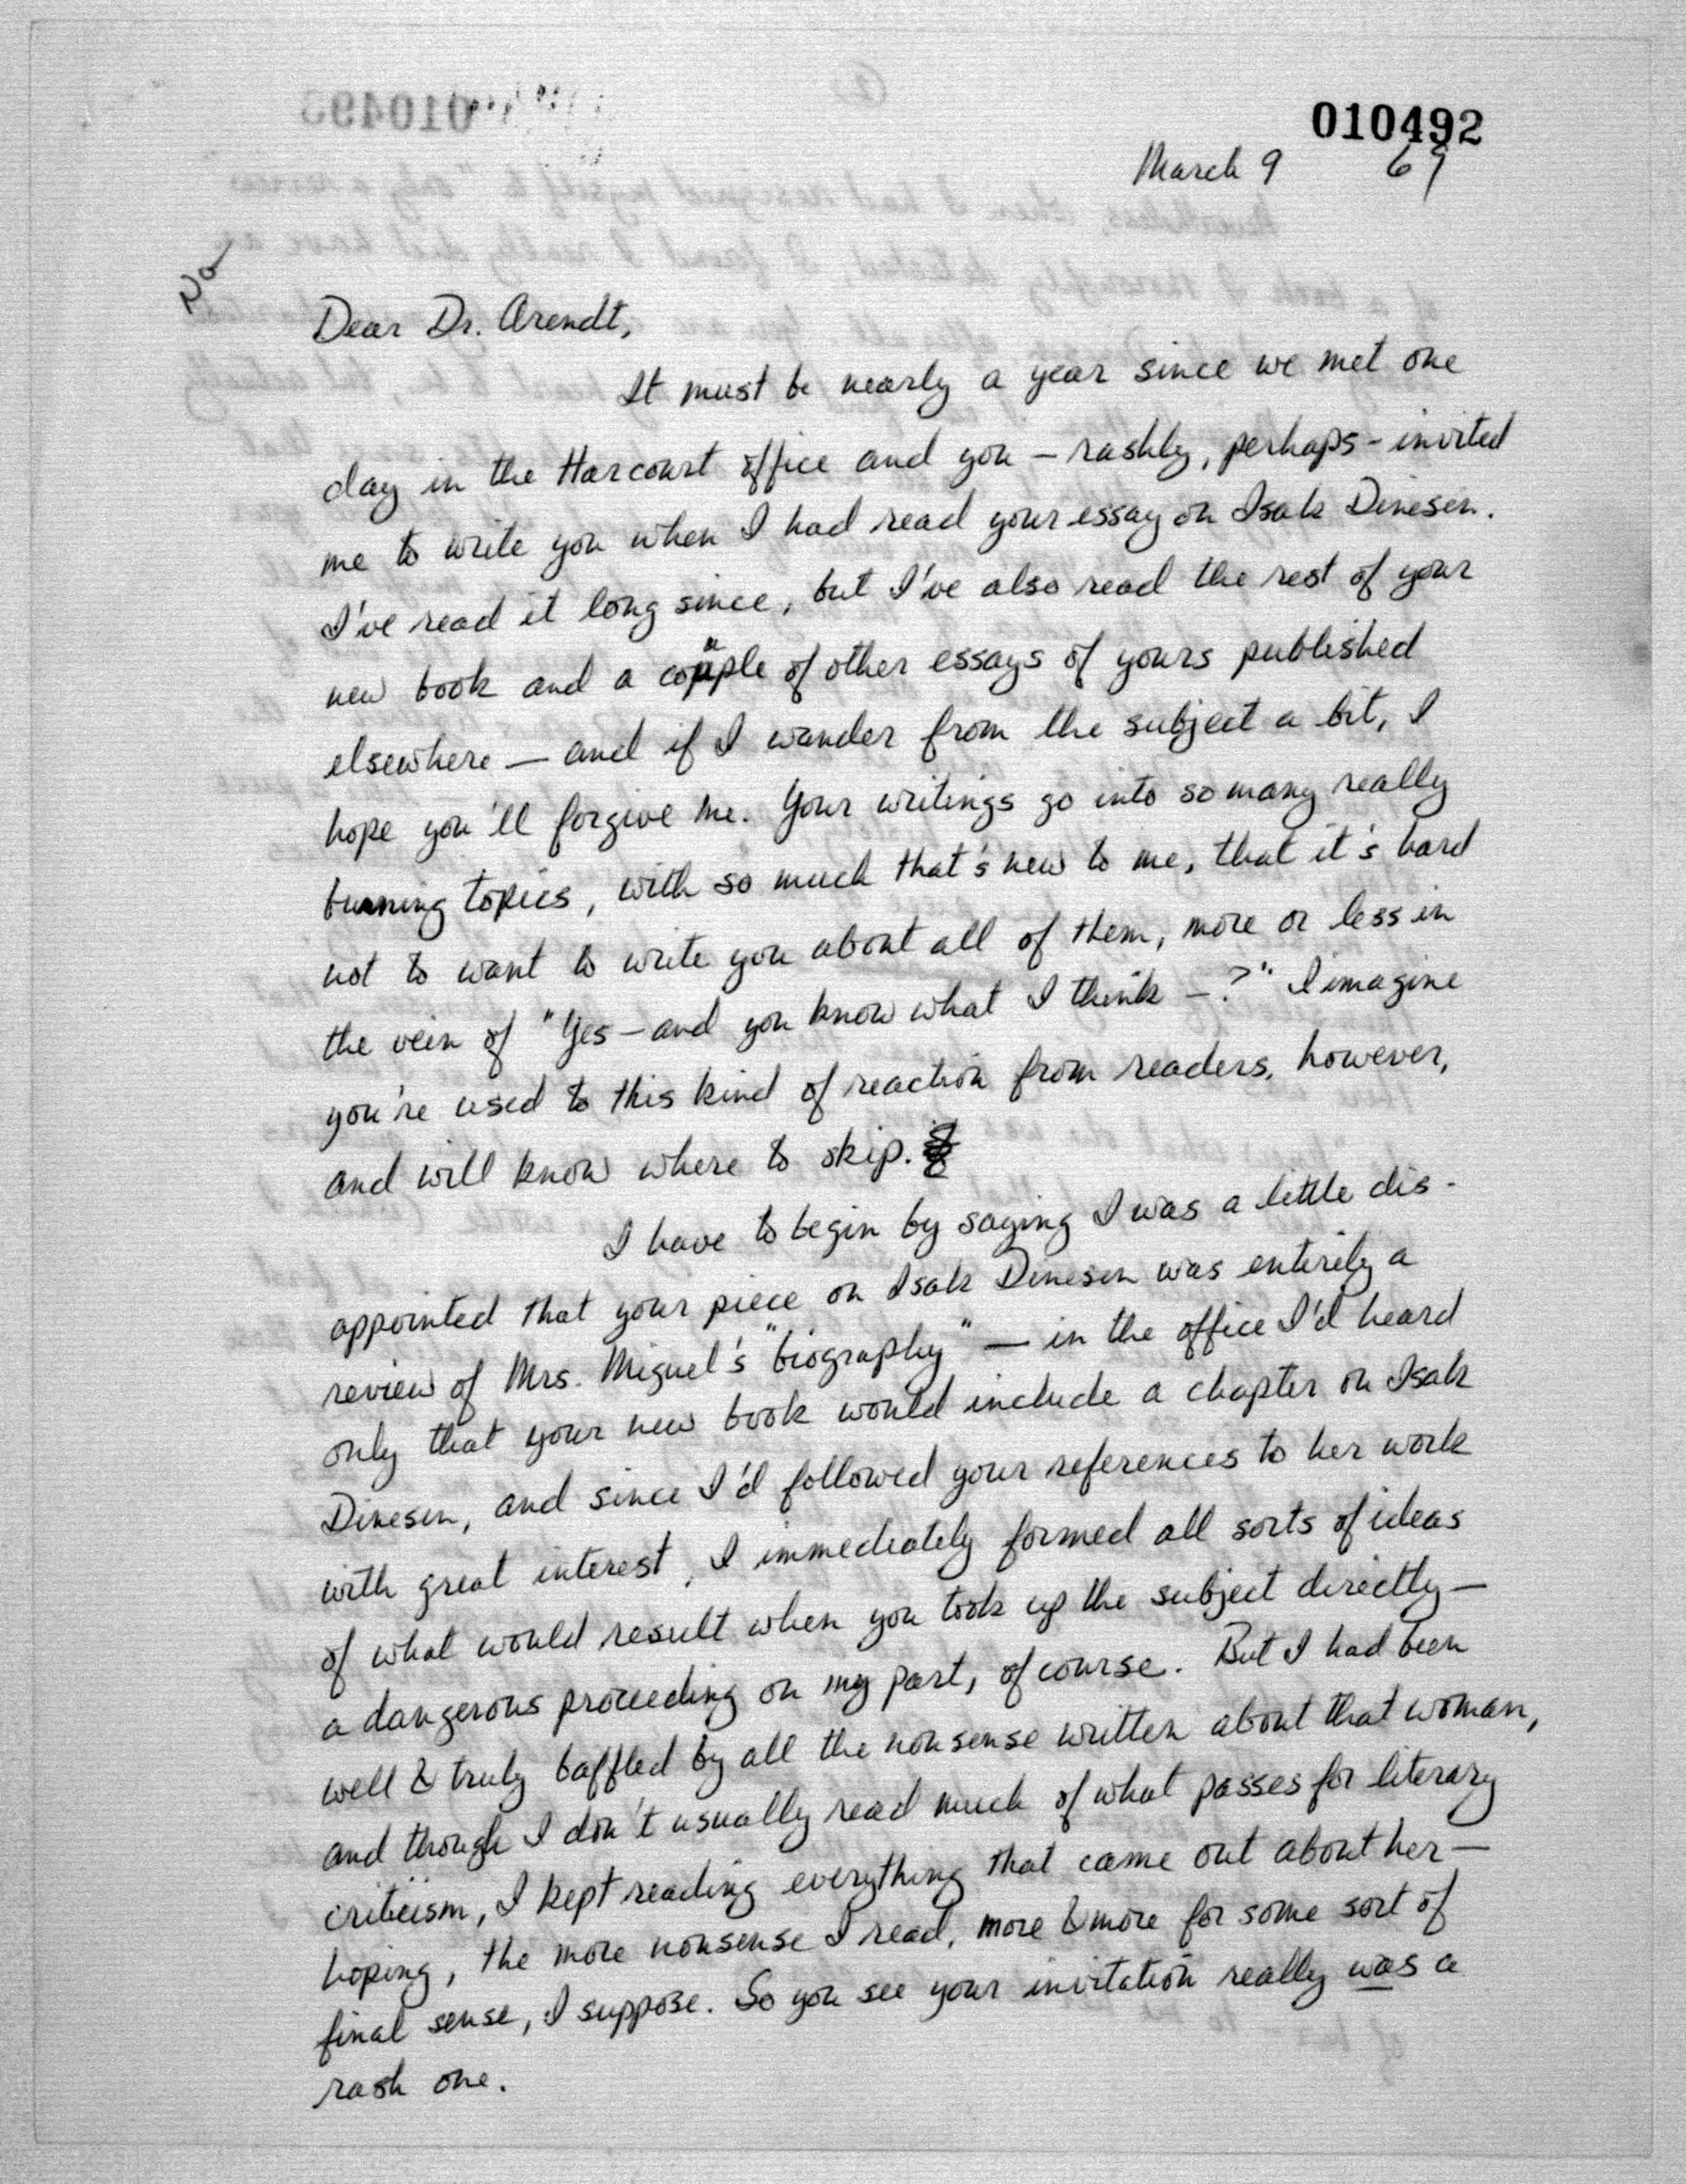 010492
March 9 69
No
Dear Dr. Arendt,
It must be nearly a year since we met one
day in the Harcourt office and you — rashly, perhaps - invited
me to write you when I had read your essay on Isak Dinesen.
I've read it long since, but I've also read the rest of your
new book and a couple of other essays of yours published
elsewhere — and if I wander from the subject a bit, I
hope you'll forgive me. Your writings go into so many really
burning topics, with so much that's new to me, that it's hard
not to want to write you about all of them, more or less in
the vein of "Yes — and you know what I think — ?" I imagine
you're used to this kind of reaction from readers, however,
and will know where to skip.
I have to begin by saying I was a little dis-
appointed that your piece on Isak Dinesen was entirely a
review of Mrs. Miguel's "biography" — in the office I'd heard
only that your new book would include a chapter on Isak
Dinesen, and since I'd followed your references to her work
with great interest, I immediately formed all sorts of ideas
of what would result when you took up the subject directly —
a dangerous proceeding on my part, of course. But I had been
well & truly baffled by all the nonsense written about that woman,
and though I don't usually read much of what passes for literary
criticism, I kept reading everything that came out about her —
hoping, the more nonsense I read, more & more for some sort of
final sense, I suppose. So you see your invitation really was a
rash one.